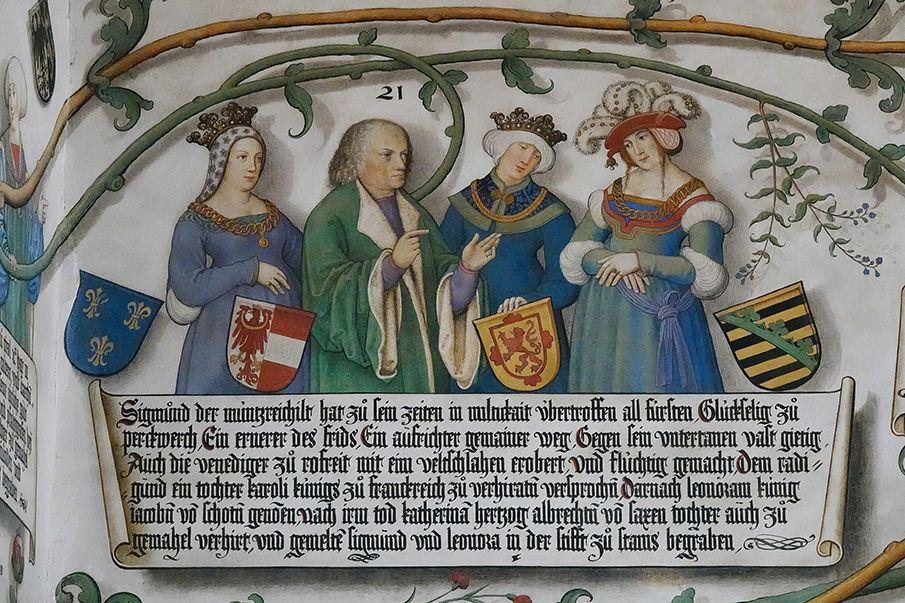 21
Sigmůnd der můntzreichist hat zů sein zeiten in miltickait vbertroffen all fürsten Glückselig zů
perckwerch Ein ernerer des frids Ein aufrichter gemainer weg Gegen sein vntertanen vast gietig
Auch die venediger zů rofreit mit eim veltschlahen erobert vnd flüchtig gemacht Dem radi-
gund ein tochter karoli künigs zů franckreich zů verhiratn̄ versprochn̄ Darnach leonoram künig
iacobn̄ vō schotn̄ genōen nach irm tod katherinā hertzog albrechtn̄ vō saxen tochter auch zů
gemahel verhirt vnd gemelte sigmůnd vnd leonora in der stifft zů stams begraben